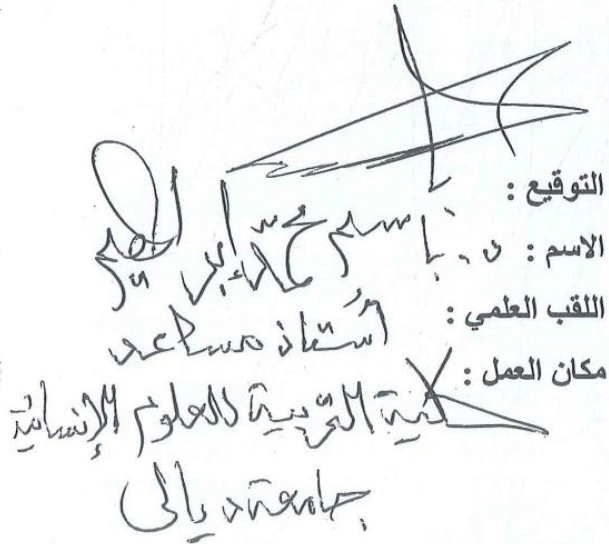 التوقيع :
الاسم : د. باسم محمد إبراهيم
اللقب العلمي : أستاذ مساعد
مكان العمل : كلية التربية للعلوم الإنسانية
جامعة ديالى